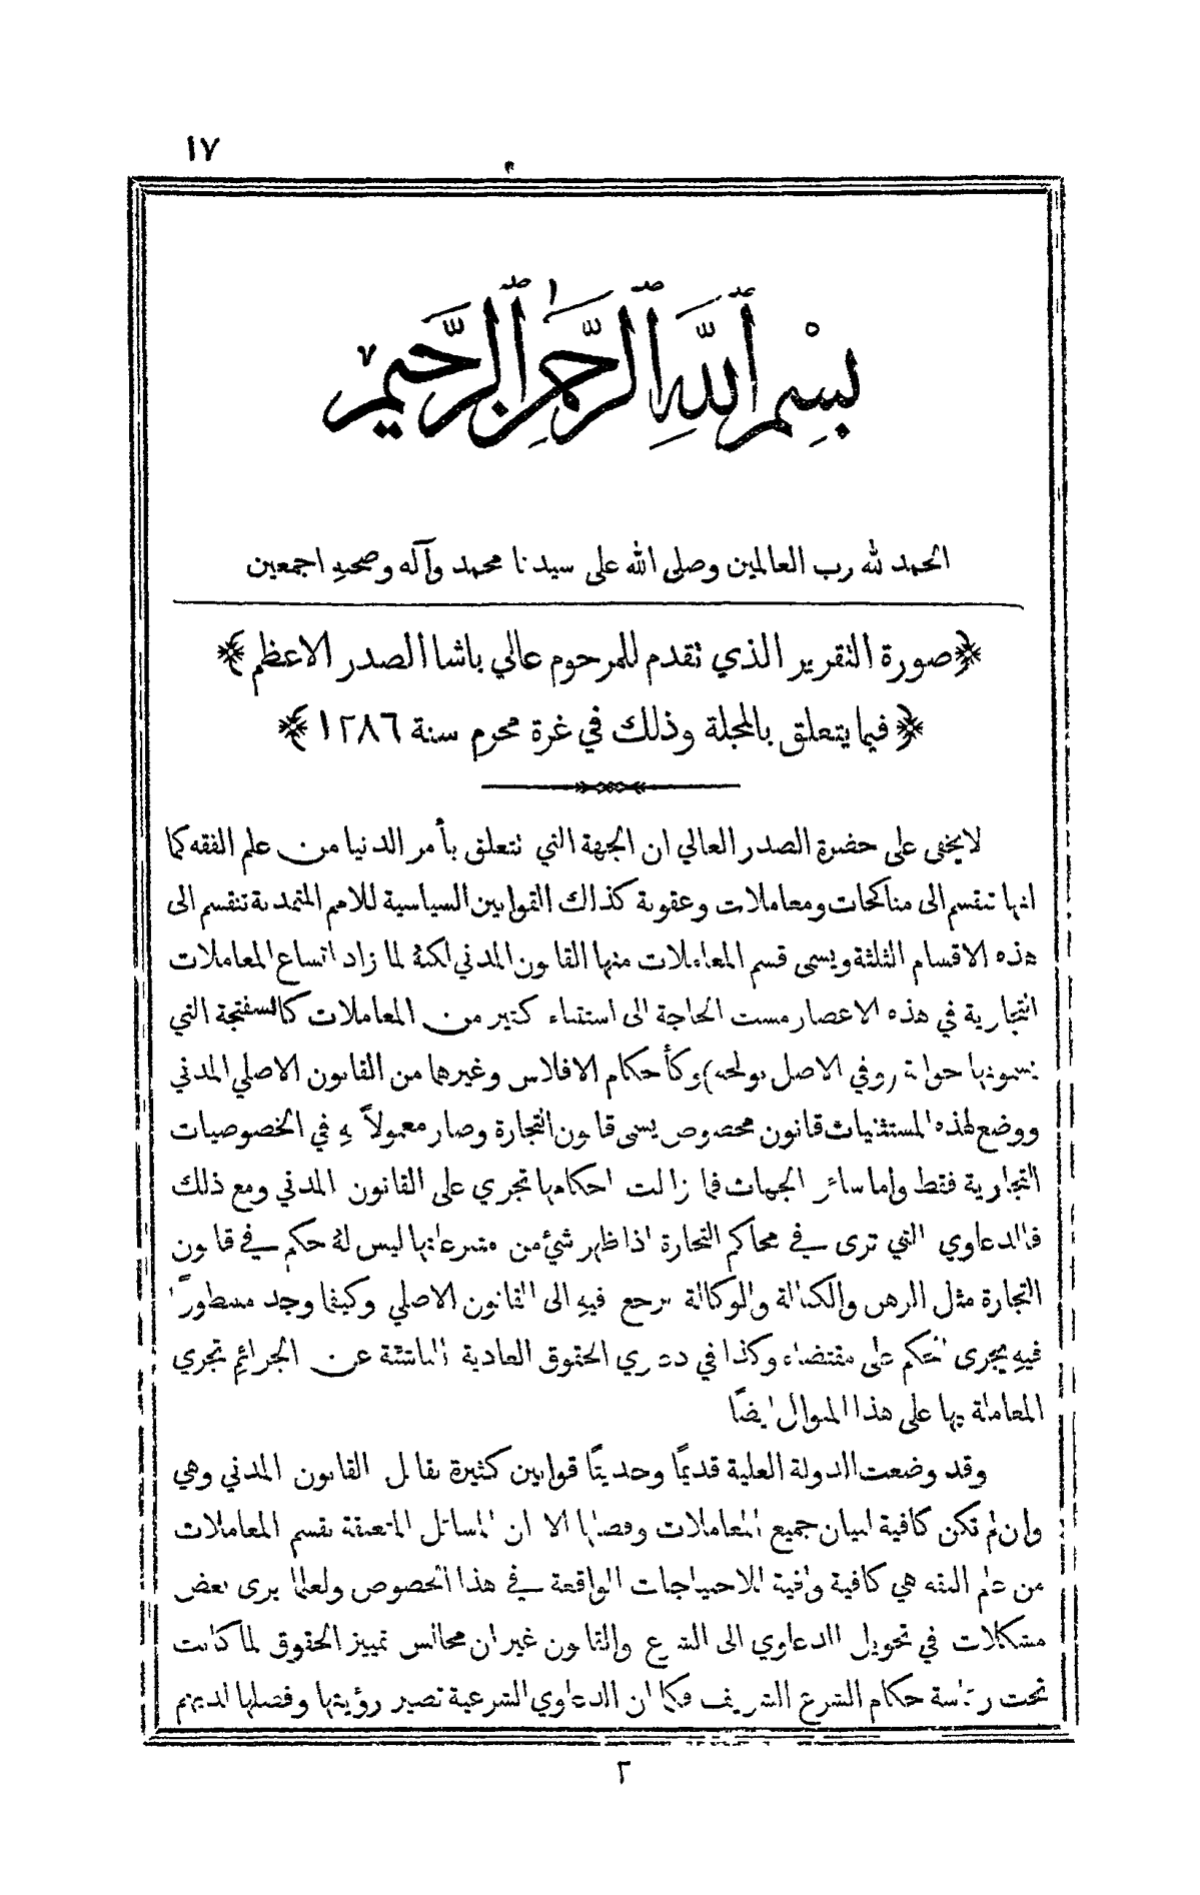 ١٧
بِسْمِ ٱللَّهِ ٱلرَّحْمَٰنِ ٱلرَّحِيمِ
الحمد لله رب العالمين وصلى الله على سيدنا محمد وآله وصحبهِ اجمعين
﴿صورة التقرير الذي تقدم للمرحوم عالي باشا الصدر الاعظم﴾
﴿فيما يتعلق بالمجلة وذلك في غرة محرم سنة ١٢٨٦﴾
لا يخفى على حضرة الصدر العالي ان الجهة التي تتعلق بأمر الدنيا من علم الفقه كما
انها تنقسم الى مناكحات ومعاملات وعقوبة كذلك القوانين السياسية للامم المتمدنة تنقسم الى
هذه الاقسام الثلثة ويسمى قسم المعاملات منها القانون المدني لكنهُ لما زاد اتساع المعاملات
التجارية في هذه الاعصار مست الحاجة الى استثناء كثير من المعاملات كالسفتجة التي
يسمونها حوالة (وفي الاصل بوليجه) وكأحكام الافلاس وغيرها من القانون الاصلي المدني
ووضع لهذه المستثنيات قانون مخصوص يسمى قانون التجارة وصار معمولاً بهِ في الخصوصيات
التجارية فقط واما سائر الجهات فما زالت احكامها تجري على القانون المدني ومع ذلك
فالدعاوي التي ترى في محاكم التجارة اذا ظهر شيءٌ من متفرعاتها ليس لهُ حكم في قانون
التجارة مثل الرهن والكفالة والوكالة يرجع فيهِ الى القانون الاصلي وكيفما وجد مسطوراً
فيهِ يجري الحكم على مقتضاه وكذا في دعاوي الحقوق العادية الناشئة عن الجرائم تجري
المعاملة بها على هذا المنوال ايضًا
وقد وضعت الدولة العلية قديمًا وحديثًا قوانين كثيرة تقابل القانون المدني وهي
وان لم تكن كافية لبيان جميع المعاملات وفصلها الا ان المسائل المتعلقة بقسم المعاملات
من علم الفقه هي كافية وافية للاحتياجات الواقعة في هذا الخصوص ولعلما يرى بعض
مشكلات في تحويل الدعاوي الى الشرع والقانون غير ان مجالس تمييز الحقوق لما كانت
تحت رئاسة حكام الشرع الشريف فكما ان الدعاوي الشرعية تصير رؤيتها وفصلها لديهم
٢